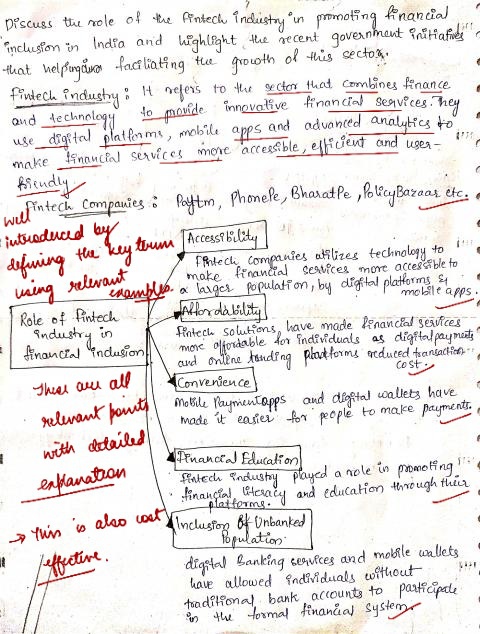 Discuss the role of the Fintech industry in promoting financial
inclusion in India and highlight the recent government initiatives
that helping facilitating the growth of this sector.
Fintech industry: It refers to the sector that combines finance
and technology to provide innovative financial services. They
use digital platforms, mobile apps and advanced analytics to
make financial services more accessible, efficient and user-
friendly
Fintech Companies: Paytm, PhonePe, BharatPe, PolicyBazaar etc.
well
introduced by
defining the key term
using relevant
examples.
Role of Fintech
industry in
financial inclusion
Accessibility
Fintech companies utilizes technology to
make financial services more accessible to
a larger population, by digital platforms &
mobile apps.
Affordability
Fintech solutions, have made financial services
more affordable for individuals as digital payments
and online lending platforms reduced transaction
cost.
Convenience
Mobile Payment apps and digital wallets have
made it easier for people to make payments.
These are all
relevant points
with detailed
explanation
Financial Education
Fintech industry played a role in promoting
financial literacy and education through their
platforms.
→ This is also cost
effective.
Inclusion Of Unbanked
Population.
digital Banking services and mobile wallets
have allowed individuals without
traditional bank accounts to participate
in the formal financial system